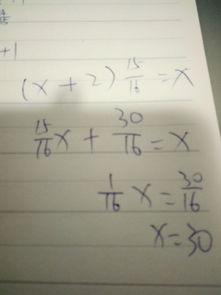 +1
(x+2) 15/16 = x
15/16 x + 30/16 = x
1/16 x = 30/16
x = 30